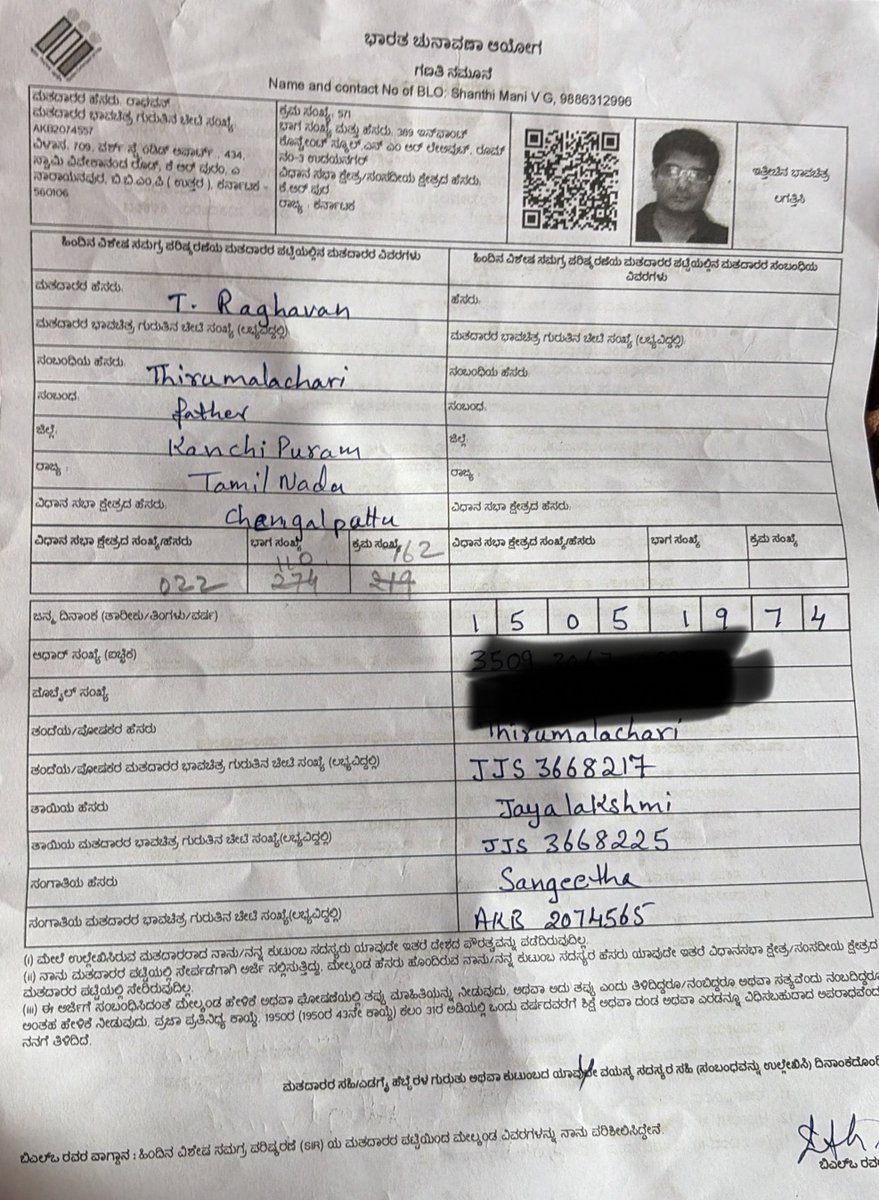 ಭಾರತ ಚುನಾವಣಾ ಆಯೋಗ
ಗಣತಿ ನಮೂನೆ
Name and contact No of BLO: Shanthi Mani V G, 9886312996
ಮತದಾರರ ಹೆಸರು: ರಾಘವನ್
ಮತದಾರರ ಭಾವಚಿತ್ರ ಗುರುತಿನ ಚೀಟಿ ಸಂಖ್ಯೆ
AKB2074557
ವಿಳಾಸ: 709, ವರ್ಶ್ ಸೈ ಅಪಾರ್ಟ್, 434,
ಸ್ವಾಮಿ ವಿವೇಕಾನಂದ ರೋಡ್, ಕೆ ಆರ್ ಪುರಂ, ಎ
ನಾರಾಯನಪುರ, ಬಿ.ಬಿ.ಎಂ.ಪಿ ( ಉತ್ತರ ), ಕರ್ನಾಟಕ -
560106
ಕ್ರಮ ಸಂಖ್ಯೆ: 571
ಭಾಗ ಸಂಖ್ಯೆ ಮತ್ತು ಹೆಸರು: 389 ಇನ್‌ಫಾಂಟ್
ಕಾನ್ವೇಂಟ್ ಸ್ಕೂಲ್,ಎನ್ ಎಂ ಆರ್ ಲೇಔಟ್, ರೂಮ್
ನಂ-3 ಉದಯನಗರ್
ವಿಧಾನ ಸಭಾ ಕ್ಷೇತ್ರ/ಸಂಸದೀಯ ಕ್ಷೇತ್ರದ ಹೆಸರು:
ಕೆ.ಆರ್.ಪುರ
ರಾಜ್ಯ : ಕರ್ನಾಟಕ
ಇತ್ತೀಚಿನ ಭಾವಚಿತ್ರ
ಲಗತ್ತಿಸಿ
ಹಿಂದಿನ ವಿಶೇಷ ಸಮಗ್ರ ಪರಿಷ್ಕರಣೆಯ ಮತದಾರರ ಪಟ್ಟಿಯಲ್ಲಿನ ಮತದಾರರ ವಿವರಗಳು
ಹಿಂದಿನ ವಿಶೇಷ ಸಮಗ್ರ ಪರಿಷ್ಕರಣೆಯ ಮತದಾರರ ಪಟ್ಟಿಯಲ್ಲಿನ ಮತದಾರರ ಸಂಬಂಧಿಯ
ವಿವರಗಳು
ಮತದಾರರ ಹೆಸರು: T. Raghavan
ಹೆಸರು:
ಮತದಾರರ ಭಾವಚಿತ್ರ ಗುರುತಿನ ಚೀಟಿ ಸಂಖ್ಯೆ (ಲಭ್ಯವಿದ್ದಲ್ಲಿ):
ಮತದಾರರ ಭಾವಚಿತ್ರ ಗುರುತಿನ ಚೀಟಿ ಸಂಖ್ಯೆ (ಲಭ್ಯವಿದ್ದಲ್ಲಿ):
ಸಂಬಂಧಿಯ ಹೆಸರು: Thirumalachari
ಸಂಬಂಧಿಯ ಹೆಸರು:
ಸಂಬಂಧ: father
ಸಂಬಂಧ:
ಜಿಲ್ಲೆ: Kanchi Puram
ಜಿಲ್ಲೆ:
ರಾಜ್ಯ : Tamil Nadu
ರಾಜ್ಯ :
ವಿಧಾನ ಸಭಾ ಕ್ಷೇತ್ರದ ಹೆಸರು: Chengalpattu
ವಿಧಾನ ಸಭಾ ಕ್ಷೇತ್ರದ ಹೆಸರು:
ವಿಧಾನ ಸಭಾ ಕ್ಷೇತ್ರದ ಸಂಖ್ಯೆ/ಹೆಸರು ಭಾಗ ಸಂಖ್ಯೆ ಕ್ರಮ ಸಂಖ್ಯೆ 162
ವಿಧಾನ ಸಭಾ ಕ್ಷೇತ್ರದ ಸಂಖ್ಯೆ/ಹೆಸರು ಭಾಗ ಸಂಖ್ಯೆ ಕ್ರಮ ಸಂಖ್ಯೆ
110
022 274 219
ಜನ್ಮ ದಿನಾಂಕ (ತಾರೀಕು/ತಿಂಗಳು/ವರ್ಷ) 1 5 0 5 1 9 7 4
ಆಧಾರ್ ಸಂಖ್ಯೆ (ಐಚ್ಛಿಕ) 3509
ಮೊಬೈಲ್ ಸಂಖ್ಯೆ
ತಂದೆಯ/ಪೋಷಕರ ಹೆಸರು Thirumalachari
ತಂದೆಯ/ಪೋಷಕರ ಮತದಾರರ ಭಾವಚಿತ್ರ ಗುರುತಿನ ಚೀಟಿ ಸಂಖ್ಯೆ (ಲಭ್ಯವಿದ್ದಲ್ಲಿ) JJS 3668217
ತಾಯಿಯ ಹೆಸರು Jayalakshmi
ತಾಯಿಯ ಮತದಾರರ ಭಾವಚಿತ್ರ ಗುರುತಿನ ಚೀಟಿ ಸಂಖ್ಯೆ(ಲಭ್ಯವಿದ್ದಲ್ಲಿ) JJS 3668225
ಸಂಗಾತಿಯ ಹೆಸರು Sangeetha
ಸಂಗಾತಿಯ ಮತದಾರರ ಭಾವಚಿತ್ರ ಗುರುತಿನ ಚೀಟಿ ಸಂಖ್ಯೆ(ಲಭ್ಯವಿದ್ದಲ್ಲಿ) AKB 2074565
(i) ಮೇಲೆ ಉಲ್ಲೇಖಿಸಿರುವ ಮತದಾರರಾದ ನಾನು/ನನ್ನ ಕುಟುಂಬ ಸದಸ್ಯರು ಯಾವುದೇ ಇತರೆ ದೇಶದ ಪೌರತ್ವವನ್ನು ಪಡೆದಿರುವುದಿಲ್ಲ.
(ii) ನಾನು ಮತದಾರರ ಪಟ್ಟಿಯಲ್ಲಿ ಸೇರ್ಪಡೆಗಾಗಿ ಅರ್ಜಿ ಸಲ್ಲಿಸುತ್ತಿದ್ದು, ಮೇಲ್ಕಂಡ ಹೆಸರು ಹೊಂದಿರುವ ನಾನು/ನನ್ನ ಕುಟುಂಬ ಸದಸ್ಯರ ಹೆಸರು ಯಾವುದೇ ಇತರೆ ವಿಧಾನಸಭಾ ಕ್ಷೇತ್ರ/ಸಂಸದೀಯ ಕ್ಷೇತ್ರದ
ಮತದಾರರ ಪಟ್ಟಿಯಲ್ಲಿ ಸೇರಿರುವುದಿಲ್ಲ.
(iii) ಈ ಅರ್ಜಿಗೆ ಸಂಬಂಧಿಸಿದಂತೆ ಮೇಲ್ಕಂಡ ಹೇಳಿಕೆ ಅಥವಾ ಘೋಷಣೆಯಲ್ಲಿ ತಪ್ಪು ಮಾಹಿತಿಯನ್ನು ನೀಡುವುದು, ಅಥವಾ ಅದು ತಪ್ಪು ಎಂದು ತಿಳಿದಿದ್ದರೂ/ನಂಬಿದ್ದರೂ ಅಥವಾ ಸತ್ಯವೆಂದು ನಂಬದಿದ್ದರೂ
ಅಂತಹ ಹೇಳಿಕೆ ನೀಡುವುದು, ಪ್ರಜಾ ಪ್ರತಿನಿಧ್ಯ ಕಾಯ್ದೆ, 1950ರ (1950ರ 43ನೇ ಕಾಯ್ದೆ) ಕಲಂ 31ರ ಅಡಿಯಲ್ಲಿ ಒಂದು ವರ್ಷದವರೆಗೆ ಶಿಕ್ಷೆ ಅಥವಾ ದಂಡ ಅಥವಾ ಎರಡನ್ನೂ ವಿಧಿಸಬಹುದಾದ ಅಪರಾಧವೆಂದು
ನನಗೆ ತಿಳಿದಿದೆ.
ಮತದಾರರ ಸಹಿ/ಎಡಗೈ ಹೆಬ್ಬೆರಳ ಗುರುತು ಅಥವಾ ಕುಟುಂಬದ ಯಾವುದೇ ವಯಸ್ಕ ಸದಸ್ಯರ ಸಹಿ (ಸಂಬಂಧವನ್ನು ಉಲ್ಲೇಖಿಸಿ) ದಿನಾಂಕದೊಂದಿ
ಬಿಎಲ್ಒ ರವರ ವಾಗ್ದಾನ : ಹಿಂದಿನ ವಿಶೇಷ ಸಮಗ್ರ ಪರಿಷ್ಕರಣೆ (SIR) ಯ ಮತದಾರರ ಪಟ್ಟಿಯಿಂದ ಮೇಲ್ಕಂಡ ವಿವರಗಳನ್ನು ನಾನು ಪರಿಶೀಲಿಸಿದ್ದೇನೆ.
ಬಿಎಲ್ಒ ರವ